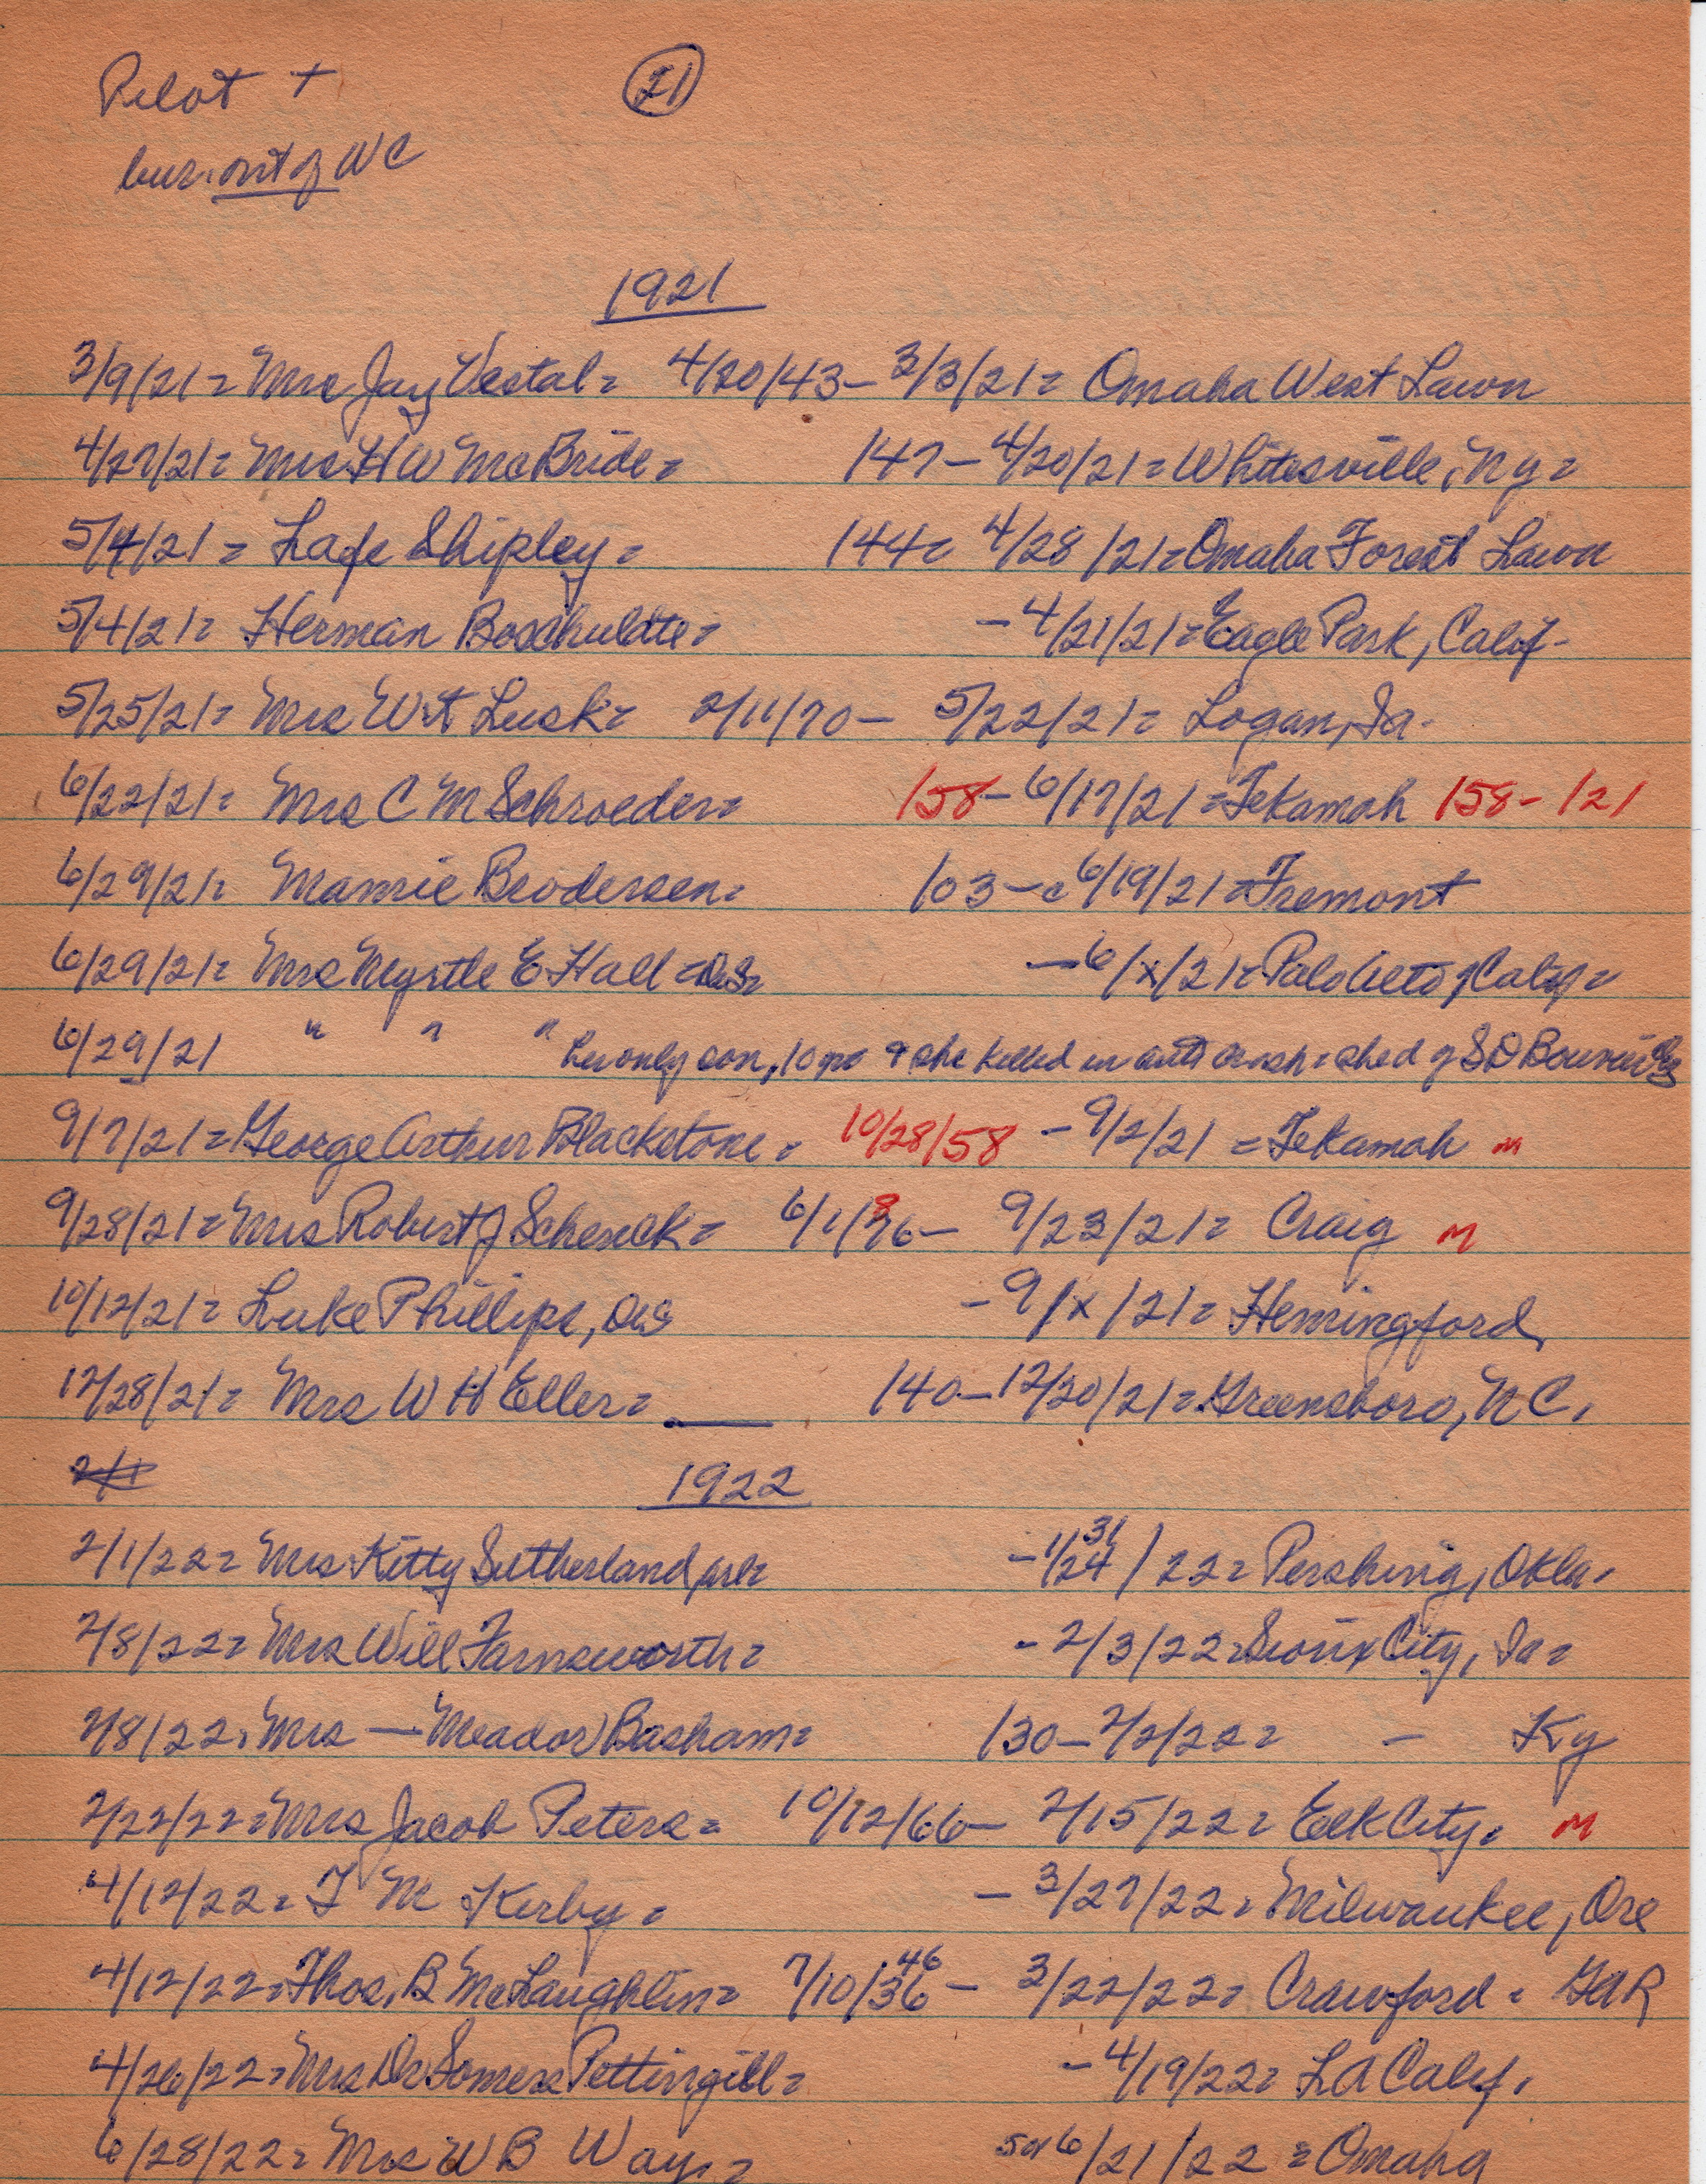 Pilot +
(21)
bur. out of WC
1921
3/9/21 = Mrs Jay Vestal = 4/20/43 – 3/3/21 = Omaha West Lawn
4/27/21 = Mrs H W McBride = 147 – 4/20/21 = Whitesville, Ny =
5/4/21 = Lafe Shipley = 144 = 4/28/21 = Omaha Forest Lawn
5/4/21 = Herman Boschuldte = – 4/21/21 = Eagle Park, Calif –
5/25/21 = Mrs Lusk = 2/11/70 – 5/22/21 = Logan, Ia.
6/22/21 = Mrs C M Schroeder = 158 – 6/17/21 = Tekamah 158 – 121
6/29/21 = Mamie Brodersen = 103 – c 6/19/21 = Fremont
6/29/21 = Mrs Myrtle E Hall = – 6/x/21 = Palo Alto, Calif =
6/29/21 " " " her only son, 10 yrs & she killed in auto crash =
9/7/21 = George Arthur Blackstone = 10/28/58 – 9/2/21 = Tekamah m
9/28/21 = Mrs Robert J Schenck = 6/1/ – 9/23/21 = Craig m
10/12/21 = Luke Phillips, – 9/x/21 = Hemingford,
12/28/21 = Mrs W H Eller = 140 – 12/20/21 = Greensboro, NC.
2/1
1922
2/1/22 = Mrs Kitty Sutherland – 1/24 31/22 = Pershing, Okla.
2/8/22 = Mrs Will Farnsworth = – 2/3/22 = Sioux City, Ia =
2/8/22 = Mrs — Meador Basham = 130 – 2/2/22 = – Ky
2/22/22 = Mrs Jacob Peters = 10/12/66 – 2/15/22 = Elk City = m
4/12/22 = T M Kirby = – 3/27/22 = Milwaukee, Ore
4/12/22 = Thos. B McLaughlin = 7/10/36 46 – 3/22/22 = Crawford = GAR
4/26/22 = Mrs Dr Somers Pettingill = – 4/19/22 = LA Calif.
6/28/22 = Mrs W B Way = 6/21/22 = Omaha